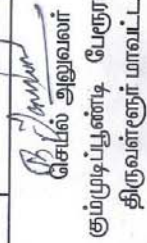 செயல் அலுவலர்
கும்முடிப்பூண்டி பேரூர
திருவள்ளூர் மாவட்ட